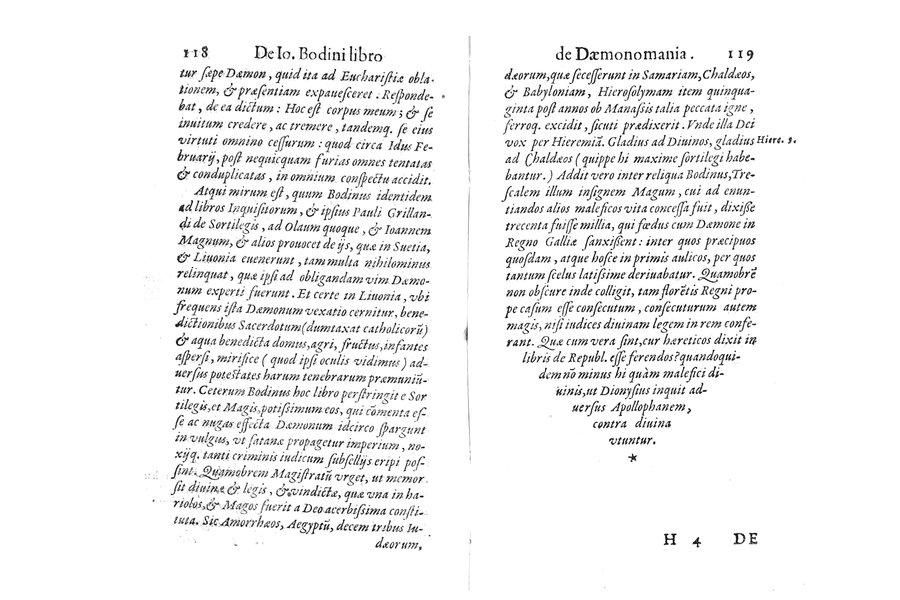 118 De Io. Bodini libro
tur sæpe Dæmon, quid ita ad Euchariſtiæ obla-
tionem, & præſentiam expaueſceret. Reſponde-
bat, de ea dictum: Hoc eſt corpus meum; & ſe
inuitum credere, ac tremere, tandemq. ſe eius
virtuti omnino ceſſurum: quod circa Idus Fe-
bruarij, poſt nequicquam furias omnes tentatas
& conduplicatas, in omnium conſpectu accidit.
Atqui mirum eſt, quum Bodinus identidem
ad libros Inquiſitorum, & ipſius Pauli Grillan-
di de Sortilegis, ad Olaum quoque, & Ioannem
Magnum, & alios prouocet de ijs, quæ in Suetia,
& Liuonia euenerunt, tam multa nihilominus
relinquat, quæ ipſi ad obligandam vim Dæmo-
num experti fuerunt. Et certe in Liuonia, vbi
frequens iſta Dæmonum vexatio cernitur, bene-
dictionibus Sacerdotum (dumtaxat catholicorũ)
& aqua benedicta domus, agri, fructus, infantes
aſperſi, mirifice (quod ipſi oculis vidimus) ad-
uerſus poteſtates harum tenebrarum præmuniũ-
tur. Ceterum Bodinus hoc libro perſtringit e Sor
tilegis, et Magis, potiſſimum eos, qui cõmenta eſ-
ſe ac nugas effecta Dæmonum idcirco ſpargunt
in vulgus, vt ſatanæ propagetur imperium, no-
xijq. tanti criminis iudicum ſubſellijs eripi poſ-
ſint. Quamobrem Magiſtratũ vrget, vt memor
ſit diuinæ & legis, & vindictæ, quæ vna in ha-
riolos, & Magos fuerit a Deo acerbiſſima conſti-
tuta. Sic Amorrhæos, Aegyptũ, decem tribus Iu-
dæorum,
de Dæmonomania. 119
dæorum, quæ ſeceſſerunt in Samariam, Chaldæos,
& Babyloniam, Hieroſolymam item quinqua-
ginta poſt annos ob Manaſſis talia peccata igne,
ferroq. excidit, ſicuti prædixerit. Vnde illa Dei
vox per Hieremiã. Gladius ad Diuinos, gladius Hiere. 9.
ad Chaldæos (quippe hi maxime ſortilegi habe-
bantur.) Addit vero inter reliqua Bodinus, Tre-
ſcalem illum inſignem Magum, cui ad enun-
tiandos alios maleficos vita conceſſa fuit, dixiſſe
trecenta fuiſſe millia, qui fœdus cum Dæmone in
Regno Galliæ ſanxiſſent: inter quos præcipuos
quoſdam, atque hoſce in primis aulicos, per quos
tantum ſcelus latiſſime deriuabatur. Quamobrẽ
non obſcure inde colligit, tam florẽtis Regni pro-
pe caſum eſſe conſecutum, conſecuturum autem
magis, niſi iudices diuinam legem in rem confe-
rant. Quæ cum vera ſint, cur hæreticos dixit in
libris de Republ. eſſe ferendos? quandoqui-
dem nõ minus hi quàm malefici di-
uinis, ut Dionyſius inquit ad-
uerſus Apollophanem,
contra diuina
vtuntur.
*
H 4 DE